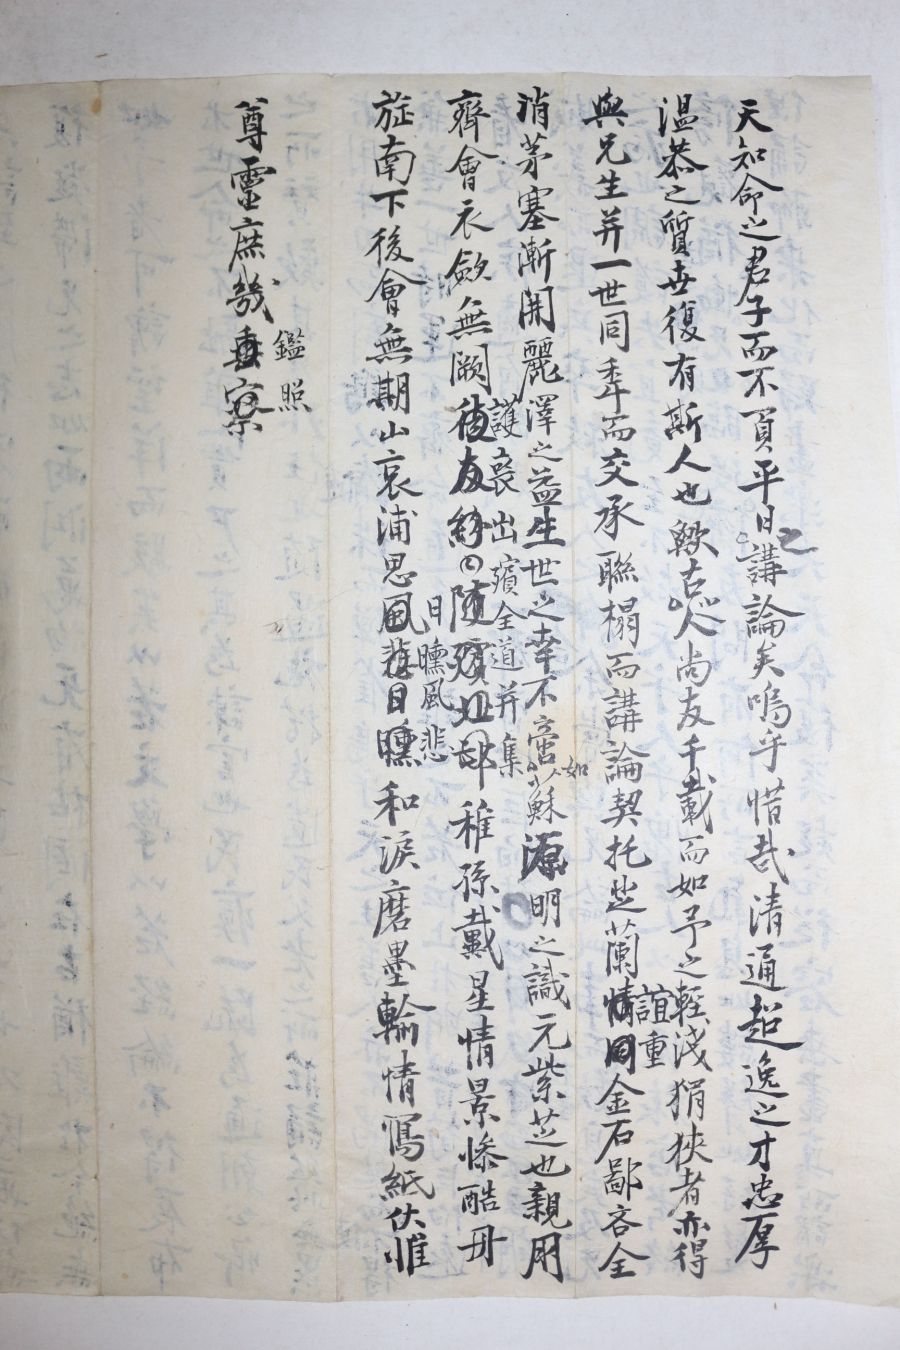 天知命之君子而不負平日之講論矣嗚乎惜哉清通超逸之才忠厚
温恭之質世復有斯人也歟古人尚友千載而如予之輕淺狷狹者亦得
與兄生并一世同秊而交承聯榻而講論契托芝蘭誼重金石鄙吝全
消茅塞漸開麗澤之益生世之幸不啻如蘇源明之識元紫芝也親用
齊會衣斂無闕護喪出殯全道并集稚孫戴星情景慘酷丹
旌南下後會無期山哀浦思日曛風悲和淚磨墨輸情寫紙伏惟
尊靈庶幾鑑照